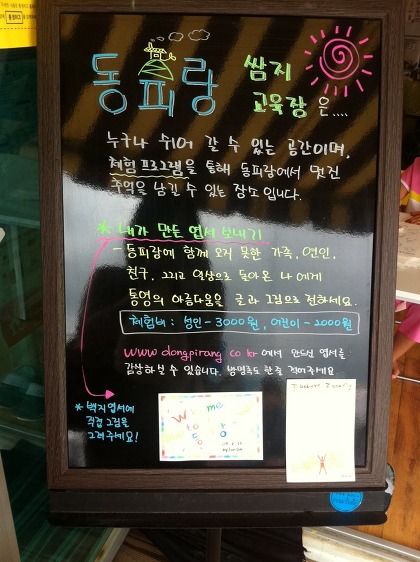 동피랑 쌈지
교육장은....
누구나 쉬어 갈 수 있는 공간이며,
체험 프로그램을 통해 동피랑에서 멋진
추억을 남길 수 있는 장소입니다.
* 내가 만든 엽서 보내기
- 동피랑에 함께 오지 못한 가족, 연인,
친구, 그리고 일상으로 돌아온 나에게
통영의 아름다움을 글과 그림으로 전하세요.
체험비 : 성인 - 3000원, 어린이 - 2000원
www dongpirang co kr 에서 만드신 엽서를
감상하실 수 있습니다. 방명록도 한줄 적어주세요
* 백지엽서에
직접 그림을
그려주세요!
me